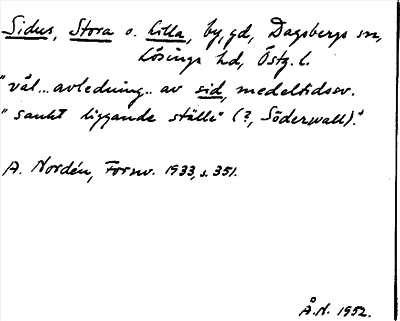 Sidus, Stora o. Lilla, by, gd, Dagsbergs sn,
Lösings hd, Östg. l.
"väl... avledning.. av sid, medeltidssv.
"sankt liggande ställe" (?, Söderwall)."
A. Nordén, Fornv. 1933, s. 351.
Å.N. 1952.